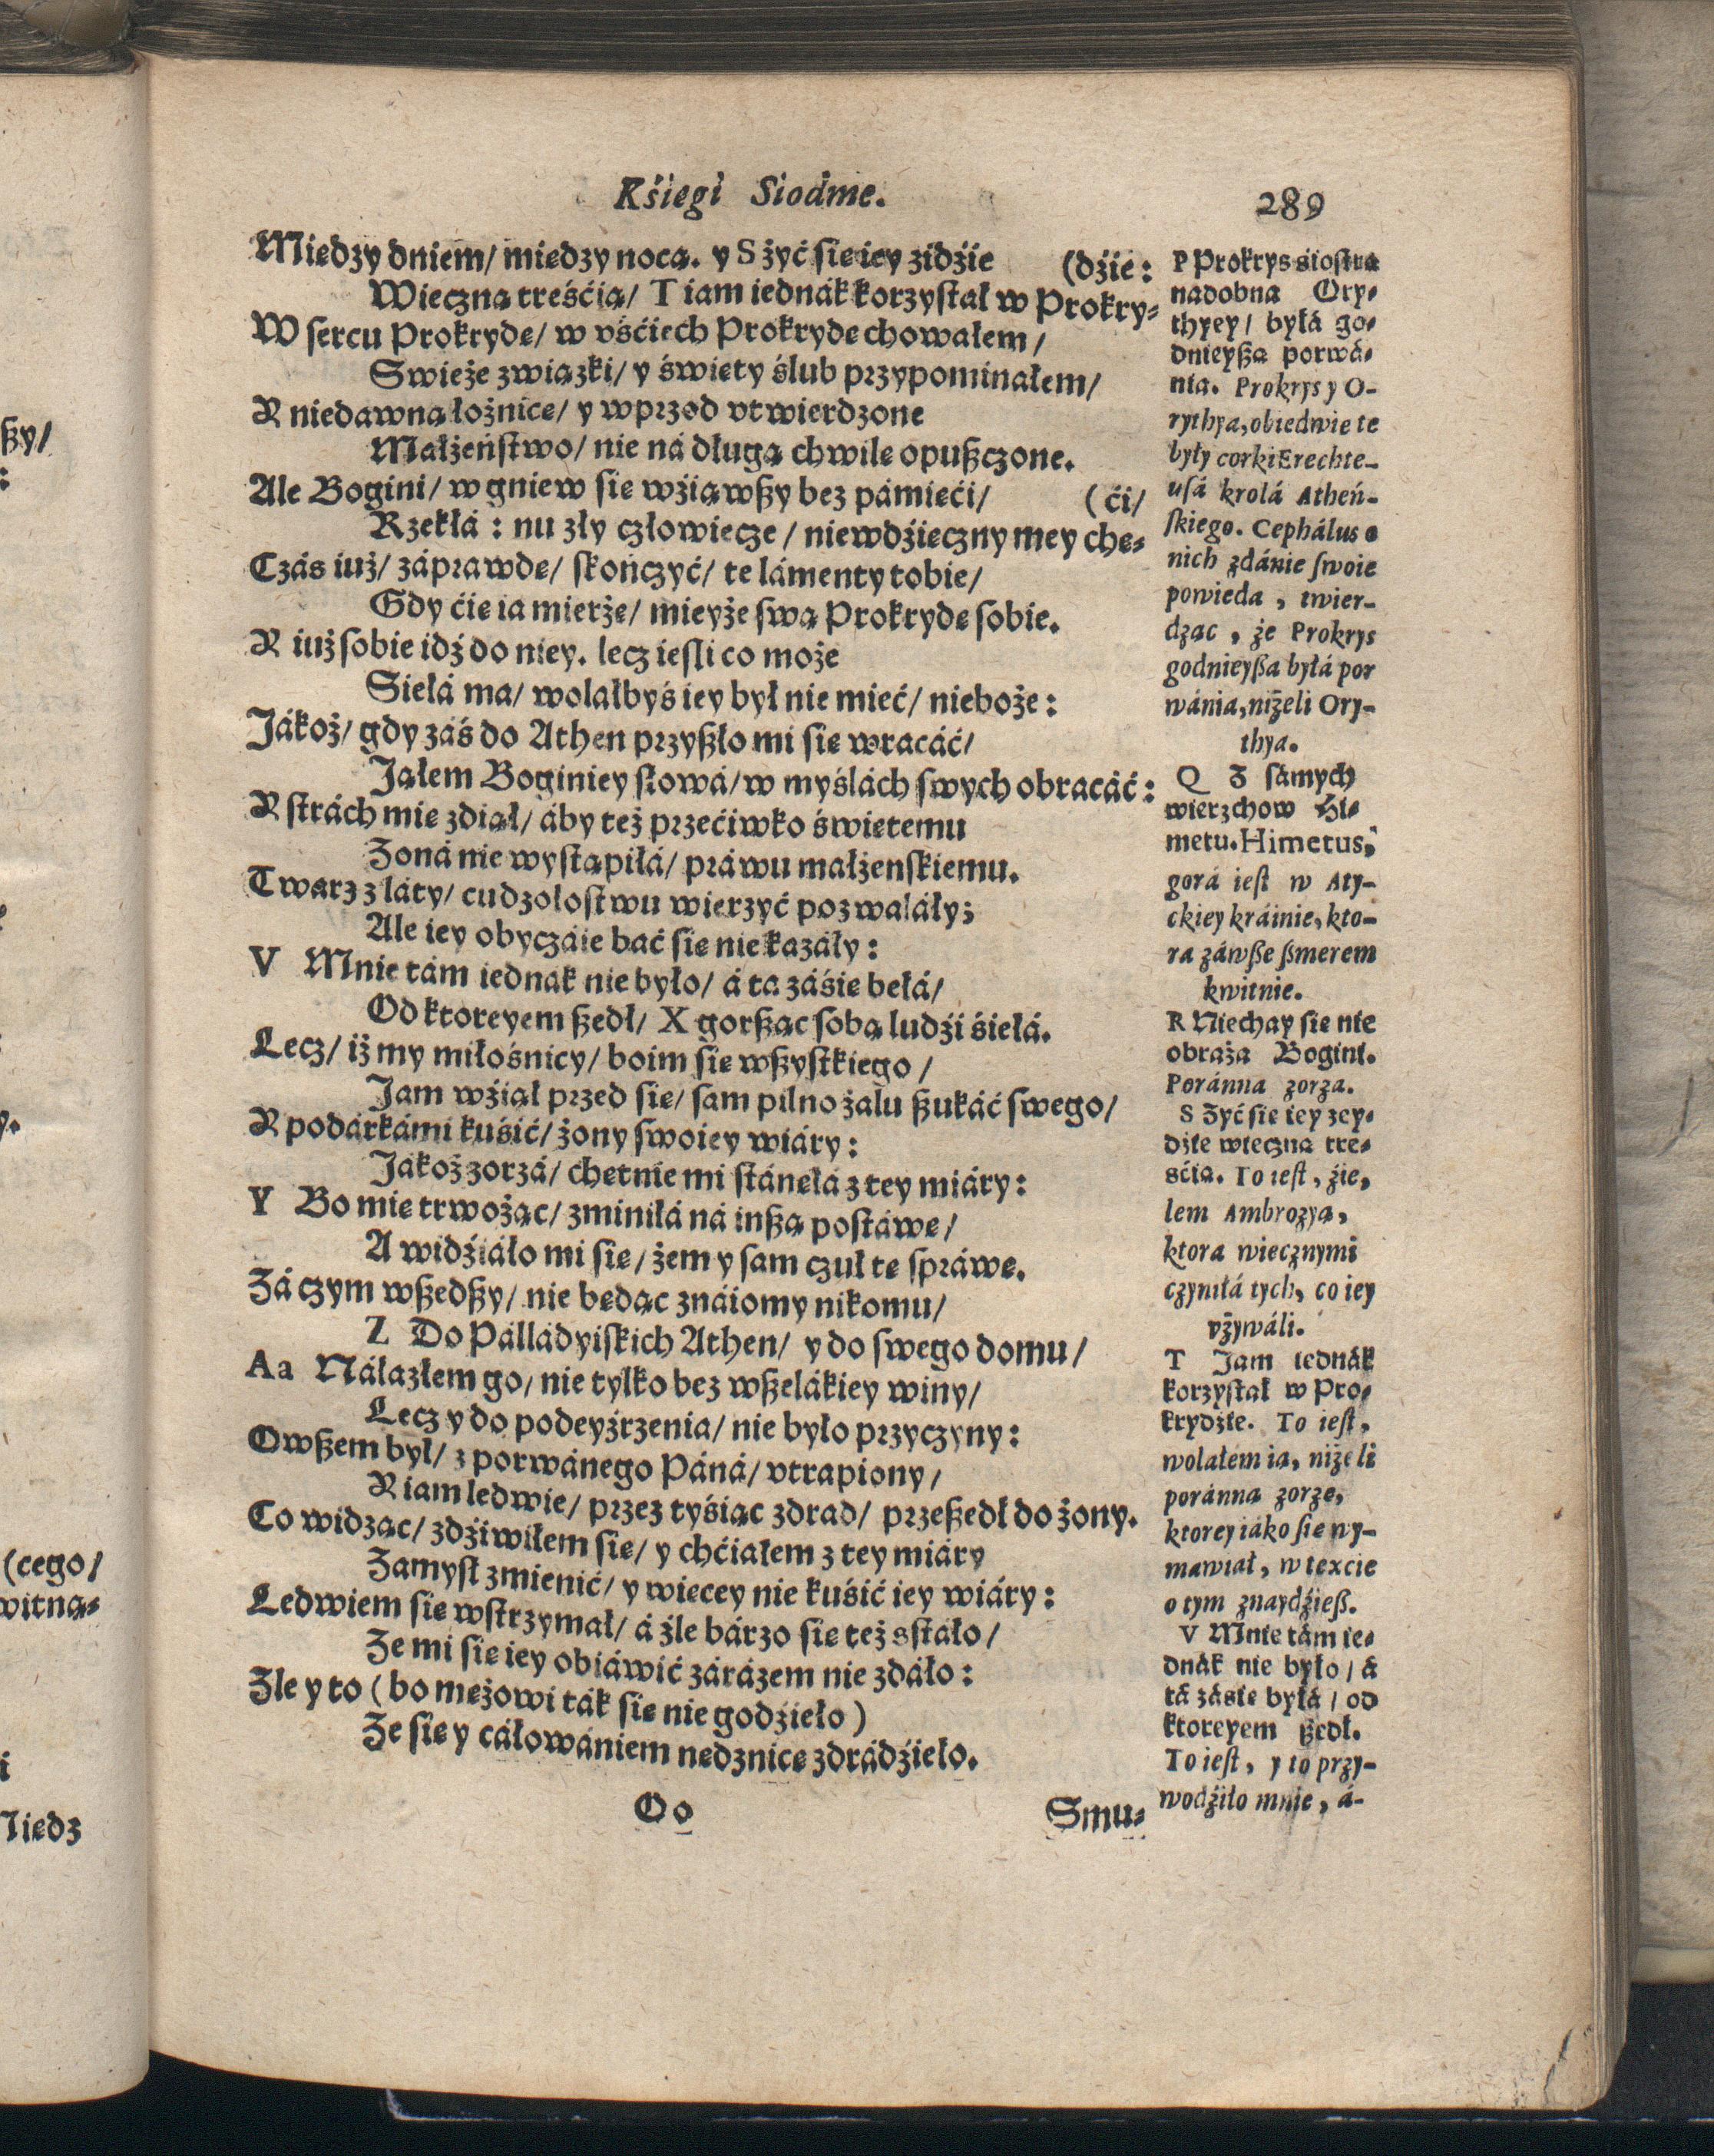 Kśięgi Siodme.
289
Między dniem/ między nocą. y S żyć się iey zidźie
(dźie:
Wieczną treśćią/ T iam iednák korzystał w Prokry-
W sercu Prokrydę/ w vśćiech Prokrydę chowałem/
Swieże związki/ y święty ślub przypominałem/
R niedawną łożnicę/ y wprzod vtwierdzone
Małżeństwo/ nie ná długą chwilę opuszczone.
Ale Bogini/ w gniew się wźiąwszy bez pámięći/
(ći/
Rzekłá: nu zły człowiecze/ niewdźięczny mey chę-
Czás iuż/ záprawdę/ skończyć/ te lámenty tobie/
Gdy ćię ia mierżę/ mieyże swą Prokrydę sobie.
R iuż sobie idź do niey. lecz iesli co może
Siełá ma/ wolałbyś iey był nie mieć/ nieboże:
Jákoż/ gdy záś do Athen przyszło mi się wracáć/
Jąłem Boginiey słowá/ w myślách swych obracáć:
R strách mię zdiął/ áby też przećiwko świętemu
Zoná nie wystąpiłá/ práwu małżenskiemu.
Twarz z láty/ cudzołostwu wierzyć pozwaláły;
Ale iey obyczáie bać się nie kazáły:
V Mnie tám iednak nie było/ á ta záśię bełá/
Od ktoreyem szedł/ X gorsząc sobą ludźi śiełá.
Lecz/ iż my miłośnicy/ boim się wszystkiego/
Jam wźiął przed się/ sam pilno żalu szukáć swego/
R podárkámi kuśić/ żony swoiey wiáry:
Jákoż zorzá/ chętnie mi stánęłá z tey miáry:
Y Bo mię trwożąc/ zminiłá ná inszą postáwę/
A widźiáło mi się/ żem y sam czuł tę spráwę.
Zá czym wszedszy/ nie będąc znáiomy nikomu/
Z Do Pálládyiskich Athen/ y do swego domu/
Aa Nálazłem go/ nie tylko bez wszelákiey winy/
Lecz y do podeyźrzenia/ nie było przyczyny:
Owszem był/ z porwánego Páná/ vtrapiony/
R iam ledwie/ przez tyśiąc zdrad/ przeszedł do żony.
Co widząc/ zdźiwiłem się/ y chćiałem z tey miáry
Zamysł zmienić/ y więcey nie kuśić iey wiáry:
Ledwiem się wstrzymał/ á źle bárzo się też sstáło/
Ze mi się iey obiáwić zárázem nie zdáło:
Zle y to (bo mężowi ták się nie godźieło)
Ze się y cáłowániem nędznicę zdrádźieło.
Oo
Smu-
P Prokrys siostra
nadobna Ory-
thyey/ byłá go-
dnieysza porwá-
nia. Prokrys y O-
rythya, obiedwie te
były corki Erechte-
usá krolá Atheń-
skiego. Cephálus o
nich zdánie swoie
powieda, twier-
dząc, że Prokrys
godnieysza byłá por
wánia, niżeli Ory-
thya.
Q Z sámych
wierzchow Hi-
metu. Himetus,
gorá iest w Aty-
ckiey kráinie, kto-
ra záwsze szmerem
kwitnie.
R Niechay się nie
obraża Bogini.
Poránna zorza.
S Zyć się iey zey-
dźie wieczną tre-
śćią. To iest, źie,
lem Ambrozyą,
ktora wiecznymi
czyniłá tych, co iey
vżywáli.
T Jam iednák
korzystał w Pro-
krydźie. To iest,
wolałem ią, niżeli
poránną zorzę,
ktorey iáko się wy-
mawiał, w texcie
o tym znaydźiesz.
V Mnie tám ie-
dnák nie było/ á
tá záśie byłá/ od
ktoreyem szedł.
To iest, y to przy-
wodźiło mnie, á-
szy/
:
y.
(cego/
witną-
i
Niedz